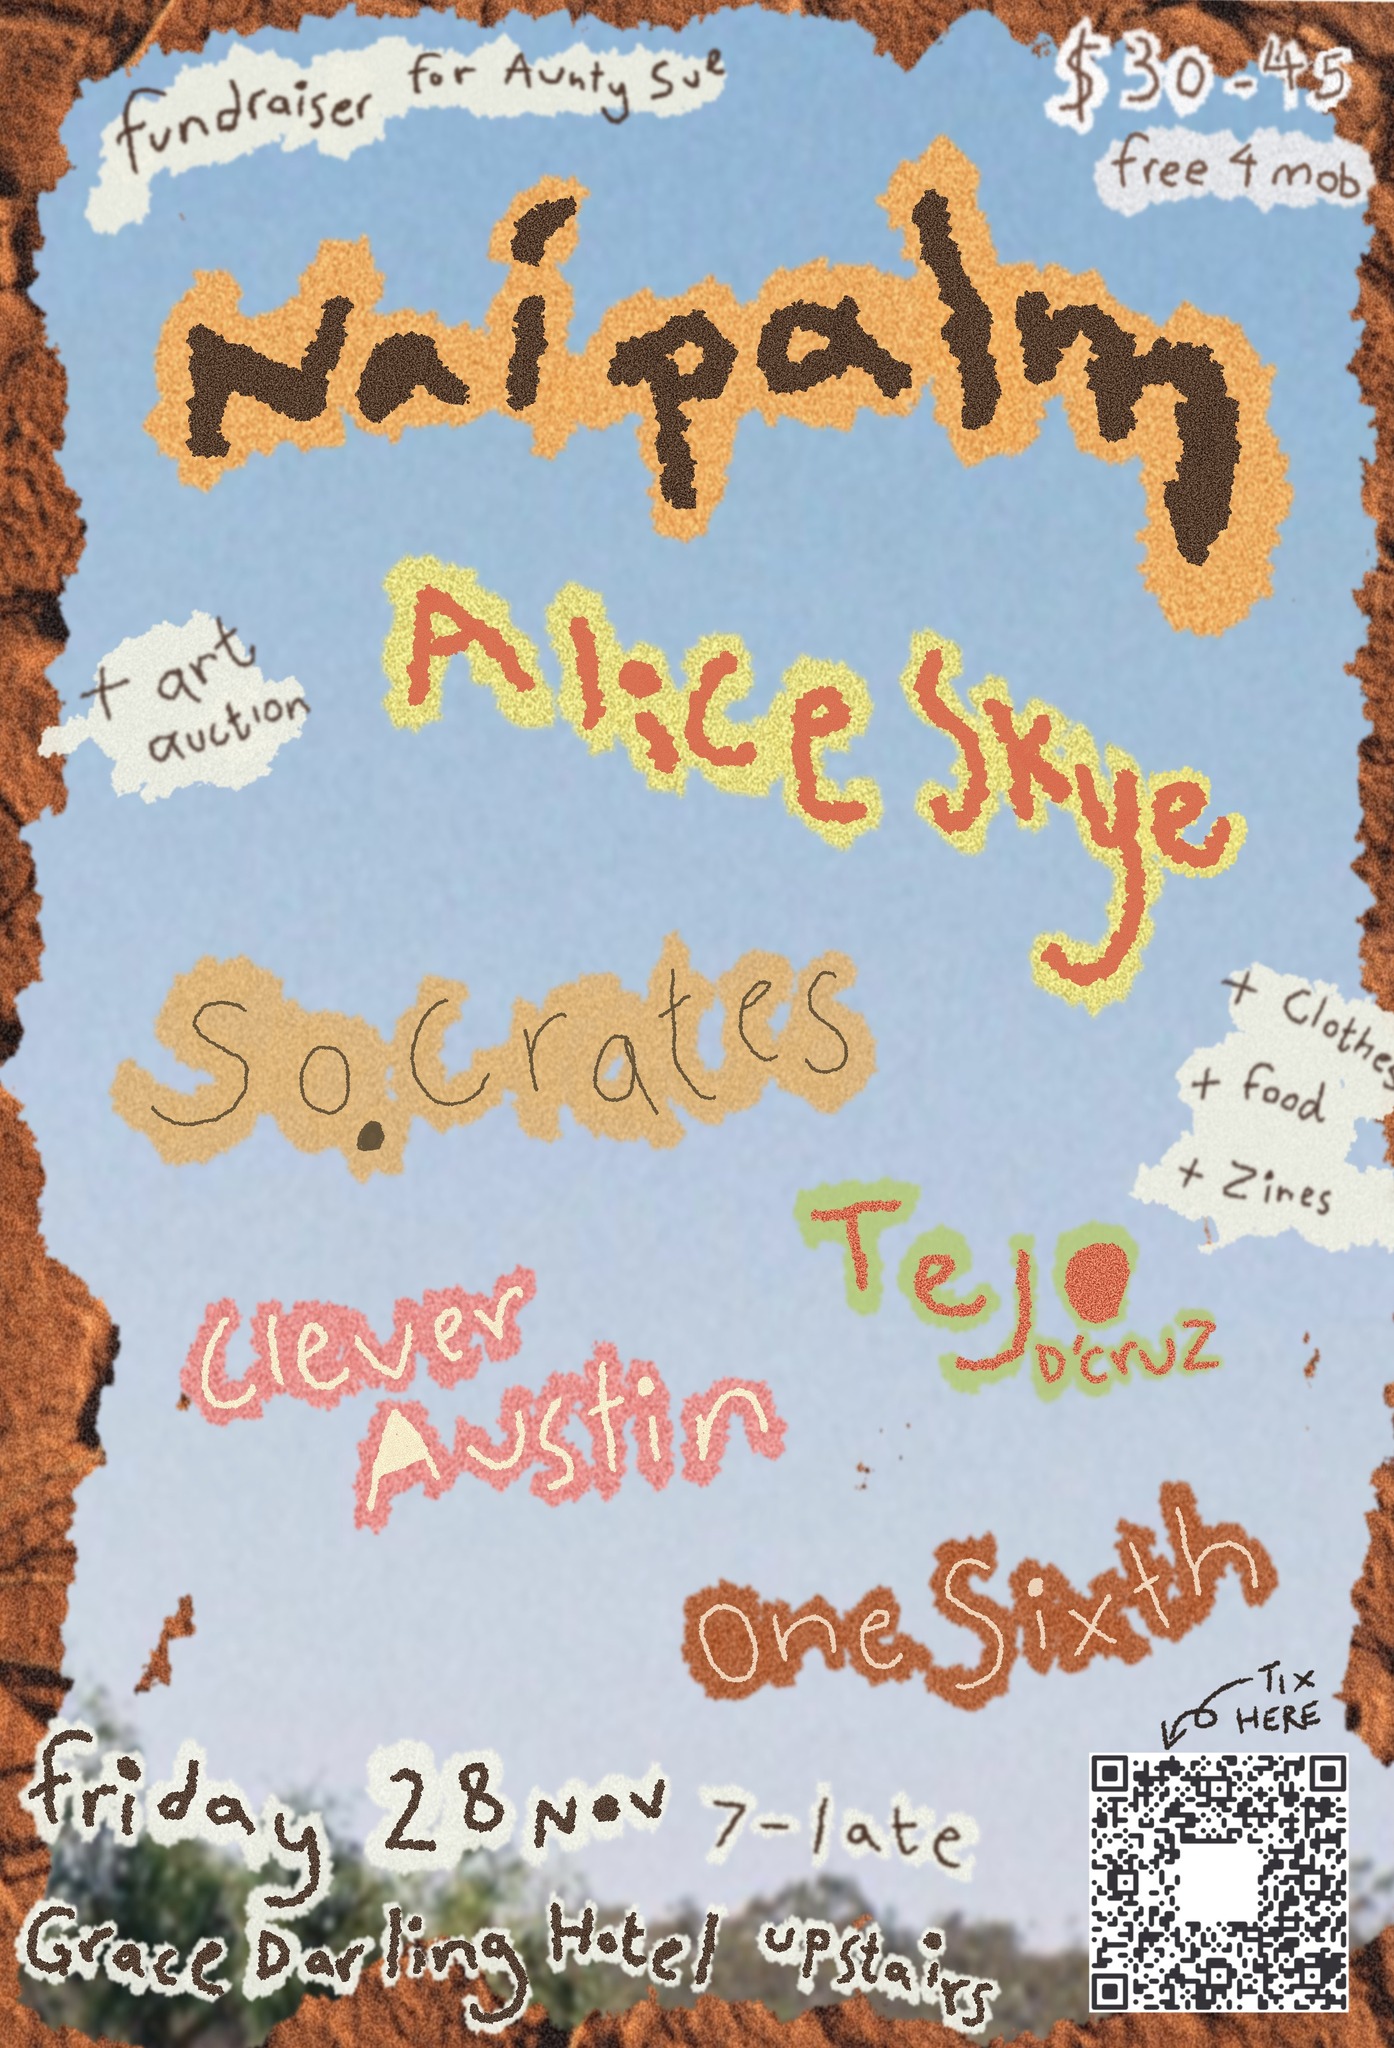 fundraiser for Aunty Sue
$30-45
free 4 mob
Naipalm
Alice Skye
+ art
auction
So.Crates
+ Clothes
+ food
+ Zines
Tejo
D'cruz
Clever
Austin
One Sixth
TIX
HERE
friday 28 Nov 7-late
Grace Darling Hotel upstairs